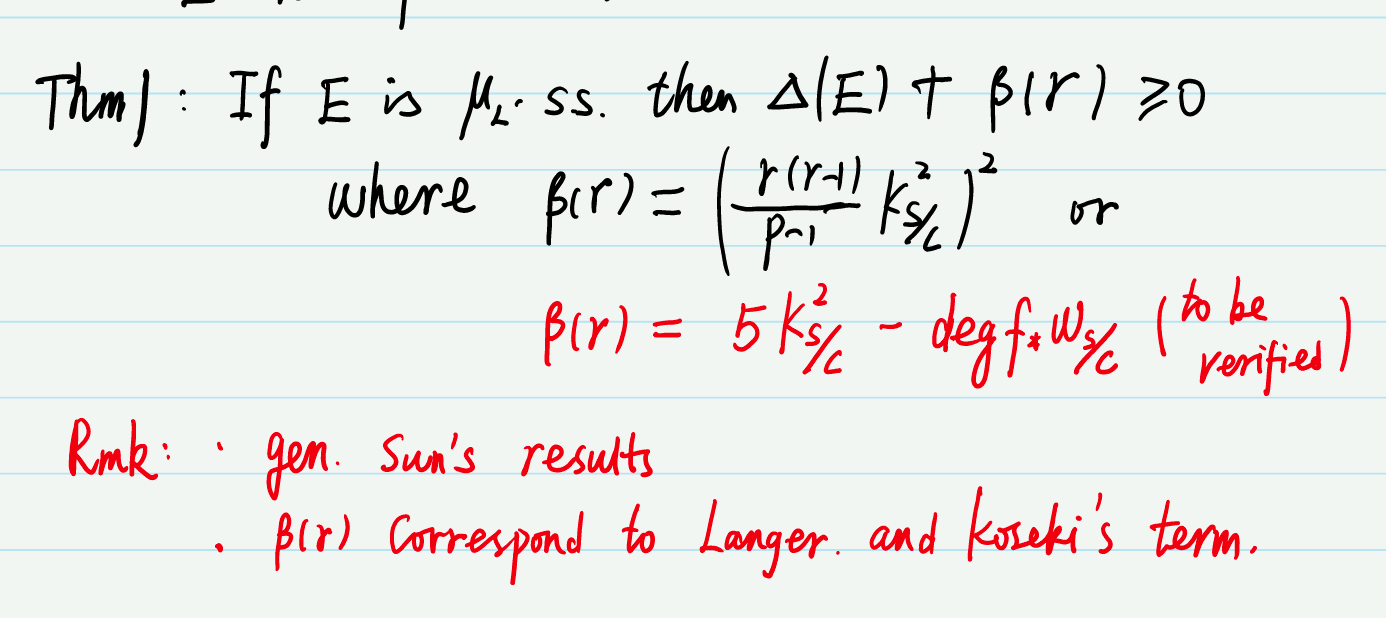 Thm 1: If E is μ_L. ss. then Δ(E) + β(r) ≥ 0
where β(r) = (r(r-1)/p-1 K²_{S/C})² or
β(r) = 5 K²_{S/C} - deg f_* ω_{S/C} (to be verified)
Rmk: · gen. Sun's results
· β(r) correspond to Langer. and Koseki's term.